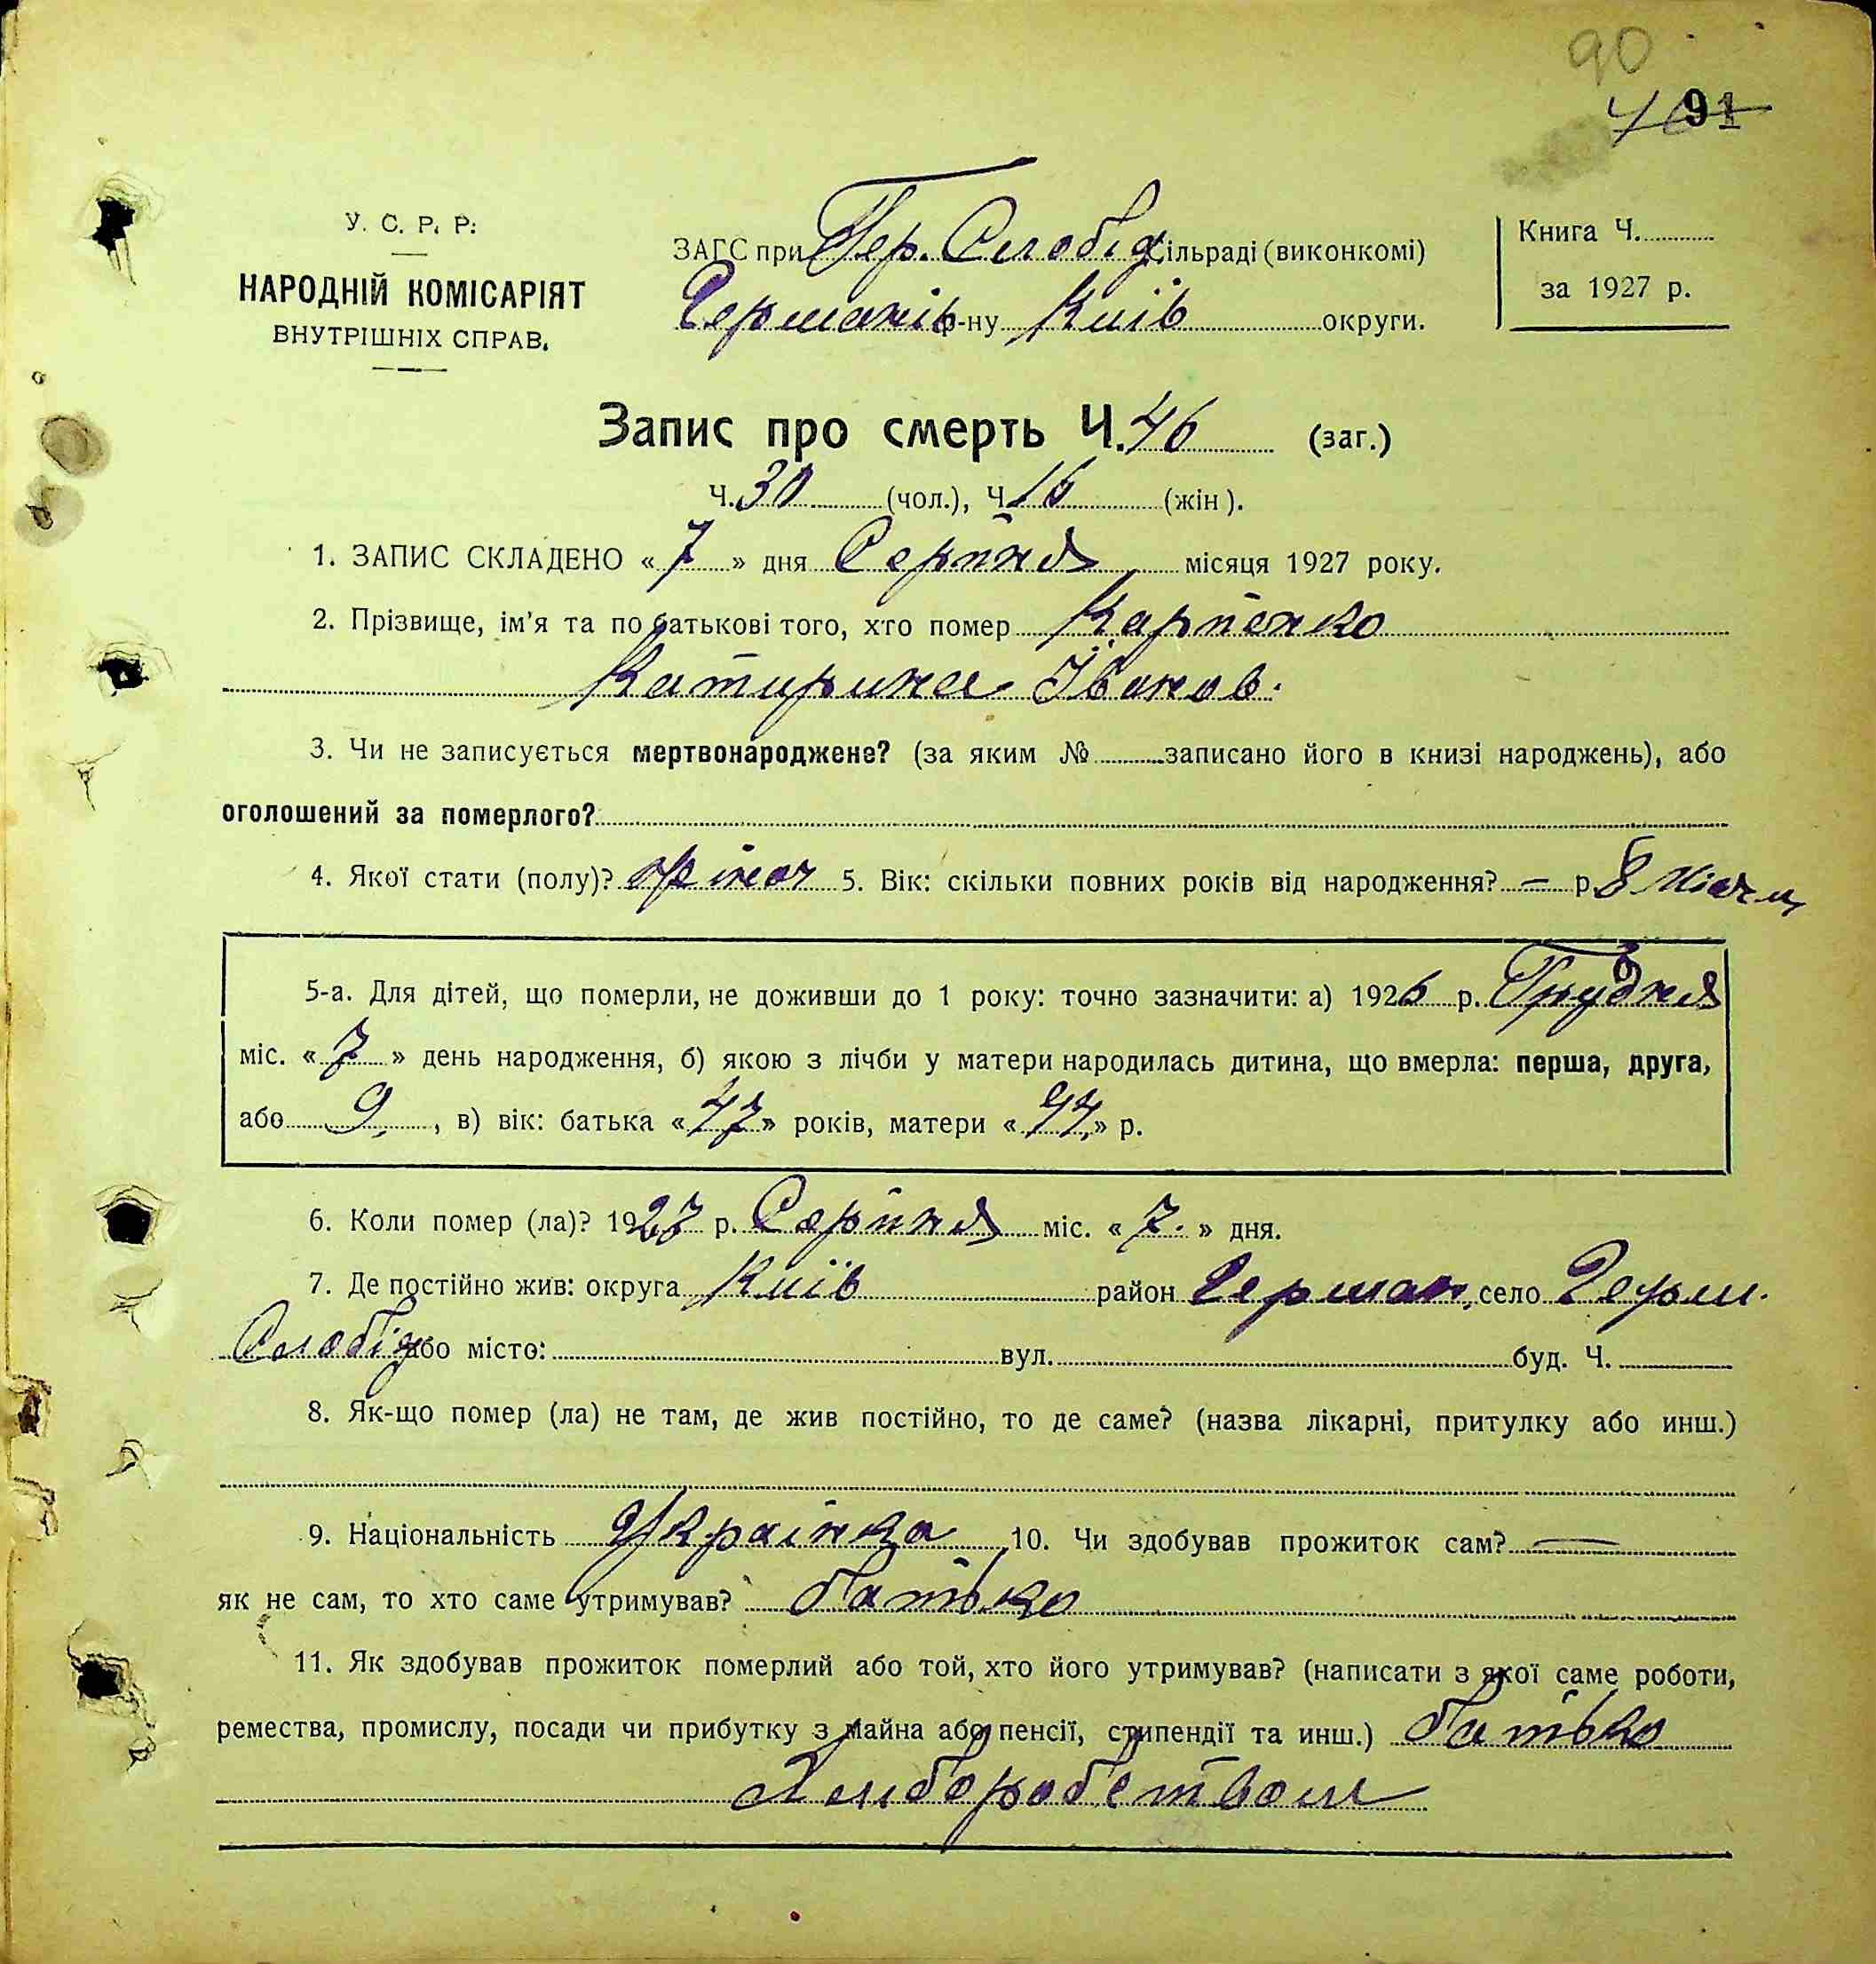 90
46 91
У. С. Р. Р.
НАРОДНІЙ КОМІСАРІЯТ
ВНУТРІШНІХ СПРАВ.
ЗАГС при Гер. Слобід. сільраді (виконкомі)
Германів р-ну Київ округи.
Книга Ч.
за 1927 р.
Запис про смерть Ч. 46 (заг.)
Ч. 30 (чол.), Ч. 16 (жін).
1. ЗАПИС СКЛАДЕНО « 7 » дня Серпня місяця 1927 року.
2. Прізвище, ім'я та по батькові того, хто помер Карпенко
Катирина Іванов.
3. Чи не записується мертвонароджене? (за яким № записано його в книзі народжень), або
оголошений за померлого?
4. Якої стати (полу)? жіноч 5. Вік: скільки повних років від народження? — р. 8 місяц
5-а. Для дітей, що померли, не доживши до 1 року: точно зазначити: а) 1926 р. Грудня
міс. « 7 » день народження, б) якою з лічби у матери народилась дитина, що вмерла: перша, друга,
або 9, , в) вік: батька « 47 » років, матери « 44, » р.
6. Коли помер (ла)? 1927 р. Серпня міс. « 7. » дня.
7. Де постійно жив: округа Київ район Герман, село Герм.
Слобід або місто: вул. буд. Ч.
8. Як-що помер (ла) не там, де жив постійно, то де саме? (назва лікарні, притулку або инш.)
9. Національність Українка 10. Чи здобував прожиток сам? —
як не сам, то хто саме утримував? батько
11. Як здобував прожиток померлий або той, хто його утримував? (написати з якої саме роботи,
ремества, промислу, посади чи прибутку з майна або пенсії, стипендії та инш.) батько
Хліборобством